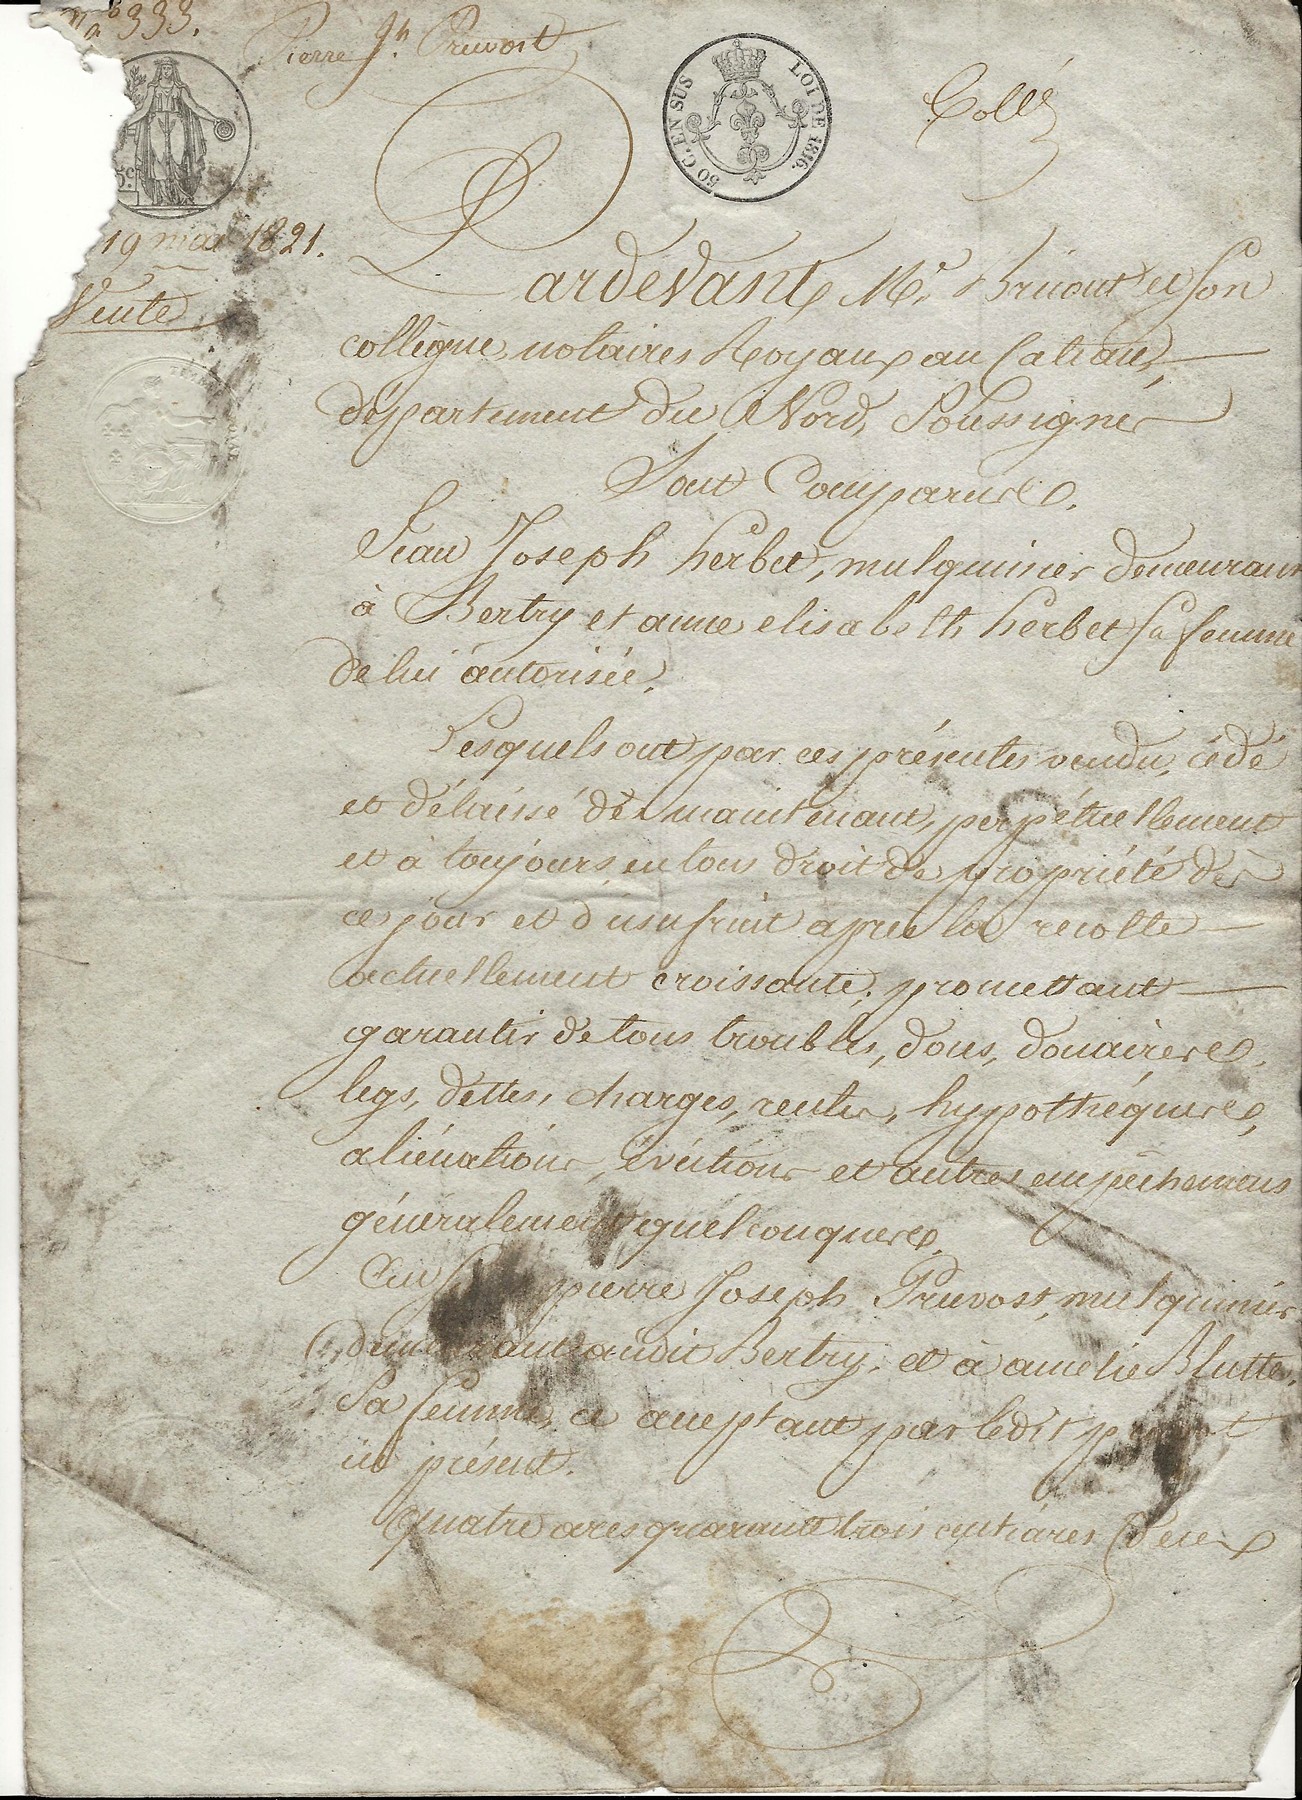 N° 333.
Pierre Jh. Pruvost
50 C. EN SUS
LOI DE 1816.
Collé
5c.
19 mai 1821.
Vente
Pardevant Me. Bricout et son
collègue, notaires Royaux au Cateau,
département du Nord, Soussignés
Sont Comparus.
Jean Joseph herbet, mulquinier demeurant
à Bertry et anne elisabeth herbet sa femme
de lui autorisée.
Lesquels ont par ces présentes vendu, cédé
et délaissé dès maintenant, perpétuellement
et à toujours, en tous droit de propriété dès
ce jour et d'usufruit après la récolte
actuellement croissante, promettant
garantir de tous troubles, dons, douaires,
legs, dettes, charges, rentes, hypothéques,
aliénations, évictions et autres empêchemens
généralement quelconques.
pierre Joseph Pruvost, mulquinier
demeurant audit Bertry, et à amélie Blutte,
Sa femme, ce acceptant par ledit pruvost
ici présent.
Quatre ares quarante trois centiares (Deux